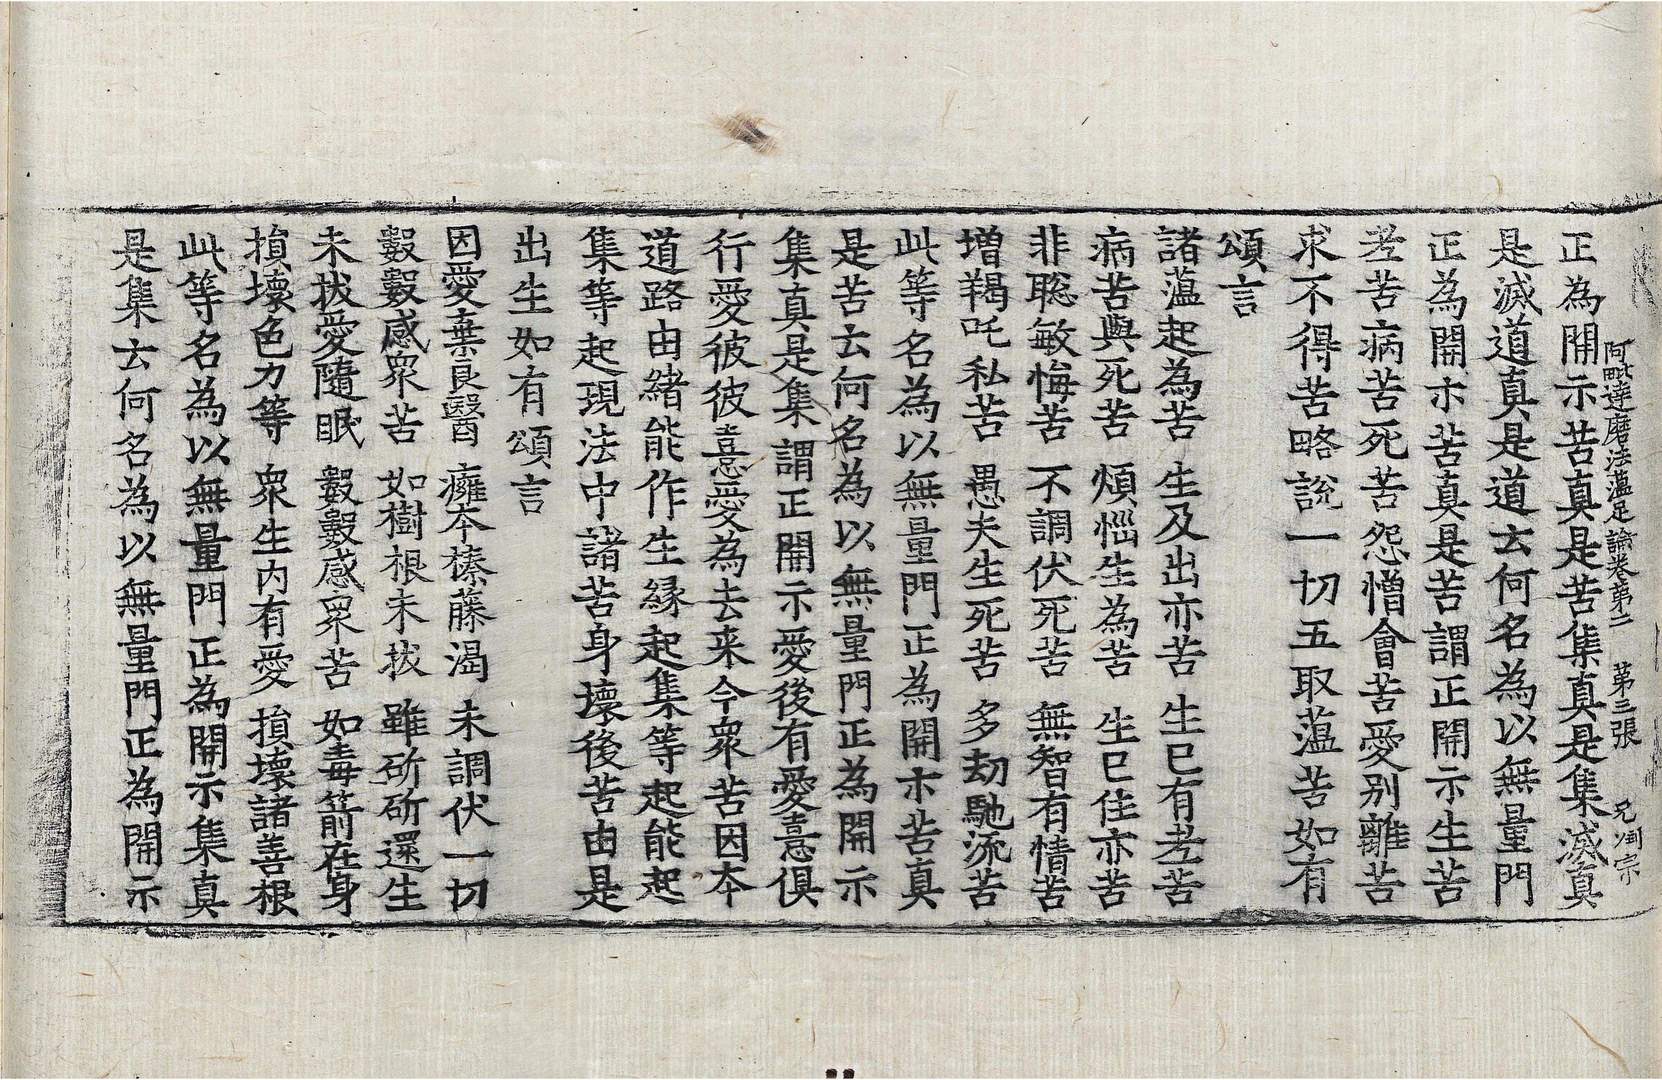 阿毗達磨法蘊足論卷第二　第三張　兄
正為開示苦真是苦集真是集滅真
是滅道真是道云何名為以無量門
正為開示苦真是苦謂正開示生苦
老苦病苦死苦怨憎會苦愛別離苦
求不得苦略說一切五取蘊苦如有
頌言
諸蘊起為苦　生及出亦苦　生已有老苦
病苦與死苦　煩惱生為苦　生已住亦苦
非聡敏悔苦　不調伏死苦　無智有情苦
增羯吒私苦　愚夫生死苦　多劫馳流苦
此等名為以無量門正為開示苦真
是苦云何名為以無量門正為開示
集真是集謂正開示愛後有愛憙俱
行愛彼彼憙愛為去来今衆苦因本
道路由緒能作生緣起集等起能起
集等起現法中諸苦身壞後苦由是
出生如有頌言
因愛棄良醫　癰本榛藤渴　未調伏一切
數數感衆苦　如樹根未拔　雖斫斫還生
未拔愛隨眠　數數感衆苦　如毒箭在身
損壞色力等　衆生内有愛　損壞諸善根
此等名為以無量門正為開示集真
是集云何名為以無量門正為開示